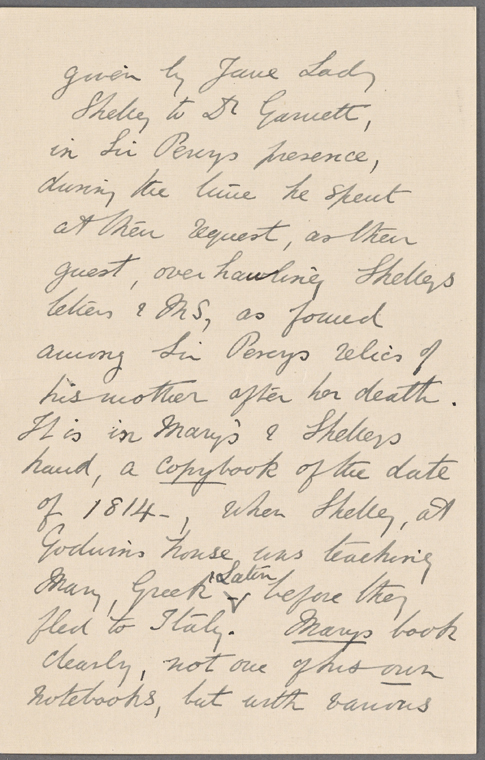 given by Jane Lady
Shelley to Dr Garnett,
in Sir Percys presence,
during the time he spent
at their request, as their
guest, overhawling Shelleys
letters & MS, as found
among Sir Percys relics of
his mother after her death.
It is in Mary's & Shelleys
hand, a copybook of the date
of 1814-, when Shelley, at
Godwins house was teaching
Mary, Greek & Latin before they
fled to Italy. Marys book
clearly, not one of his own
notebooks, but with various